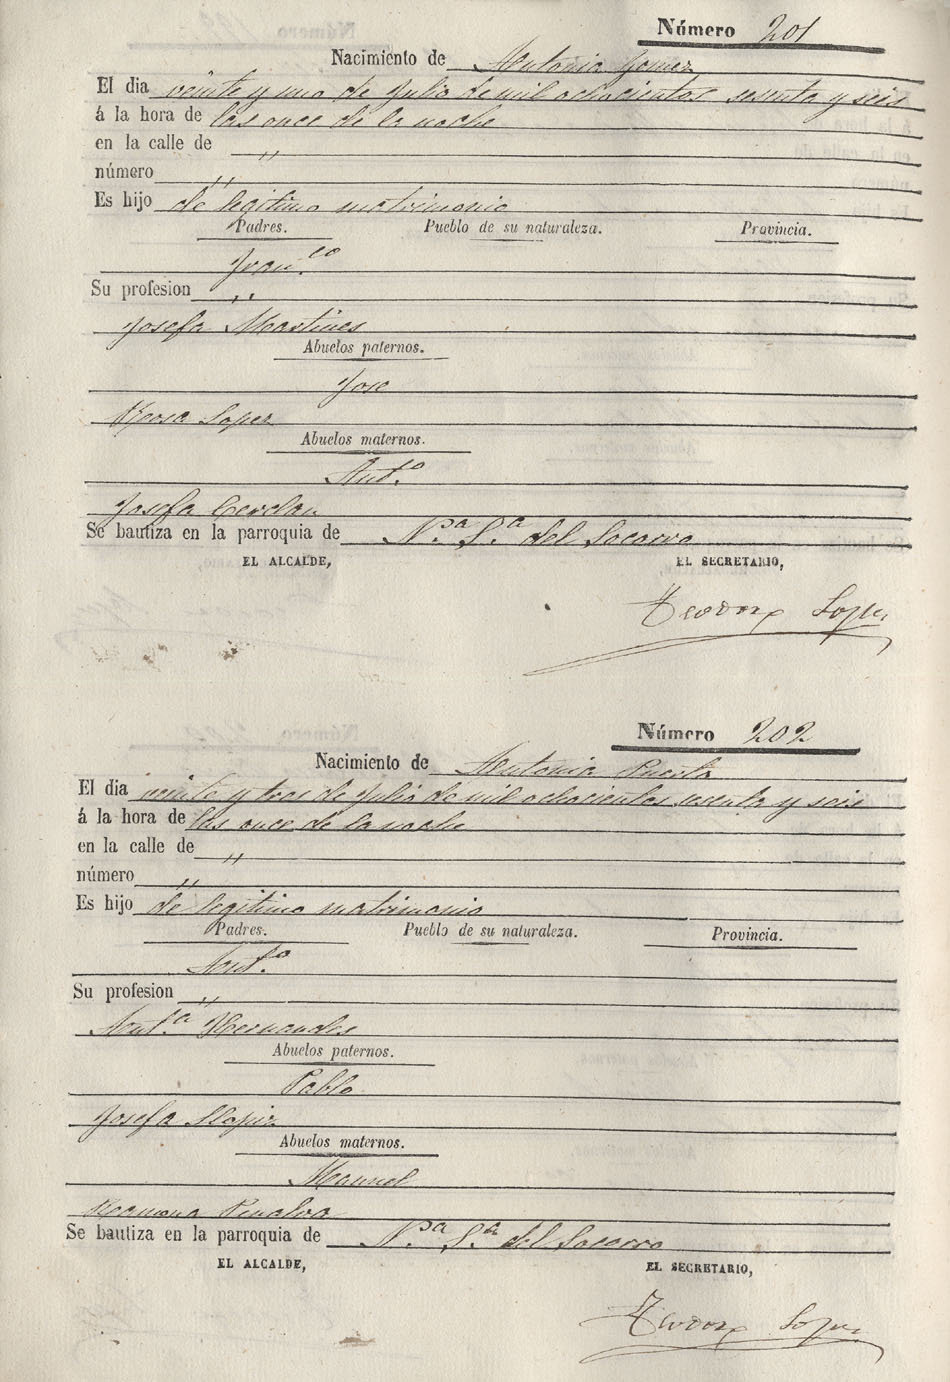 Número 201
Nacimiento de Antonia Gomez
El dia veinte y uno de Julio de mil ochocientos sesenta y seis
á la hora de las once de la noche
en la calle de "
número "
Es hijo de legitimo matrimonio
Padres. Pueblo de su naturaleza. Provincia.
Fran.co
Su profesion "
Josefa Martines
Abuelos paternos.
Jose
Rosa Lopez
Abuelos maternos.
Ant.o
Josefa Cerdan
Se bautiza en la parroquia de N.a S.a del Socorro
EL ALCALDE, EL SECRETARIO,
Teodoro Lopez
Número 202
Nacimiento de Antonia Puerto
El dia veinte y tres de Julio de mil ochocientos sesenta y seis
á la hora de las once de la noche
en la calle de "
número "
Es hijo de legitimo matrimonio
Padres. Pueblo de su naturaleza. Provincia.
Ant.o
Su profesion "
Ant.a Hernandes
Abuelos paternos.
Pablo
Josefa Llopiz
Abuelos maternos.
Manuel
Ramona Penalva
Se bautiza en la parroquia de N.a S.a del Socorro
EL ALCALDE, EL SECRETARIO,
Teodoro Lopez